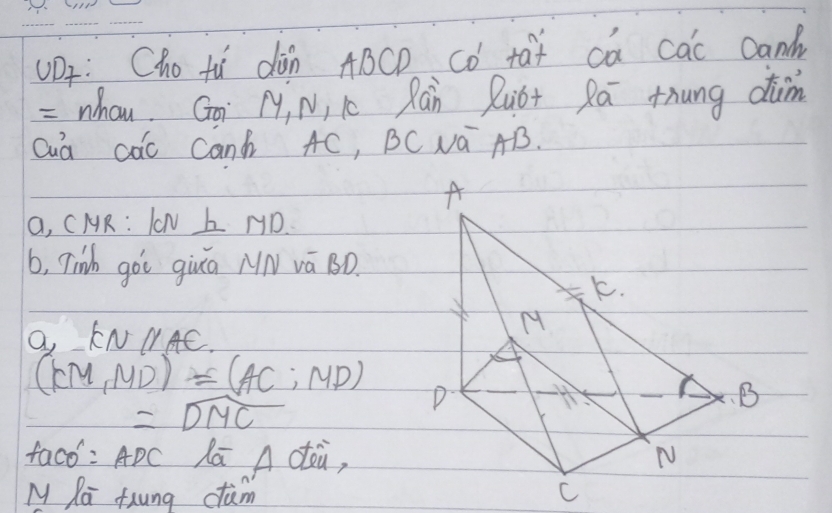 VD7: Cho tứ diện ABCD có tất cả các cạnh
= nhau. Gọi M, N, K lần lượt là trung điểm
của các cạnh AC, BC và AB.
a, CMR: KN ⊥ MD.
b, Tính góc giữa MN và BD.
a, KN // AC.
(KM, MD) = (AC; MD)
= DMC
ta có: ADC là Δ đều,
M là trung điểm
A
K.
M
D
B
N
C